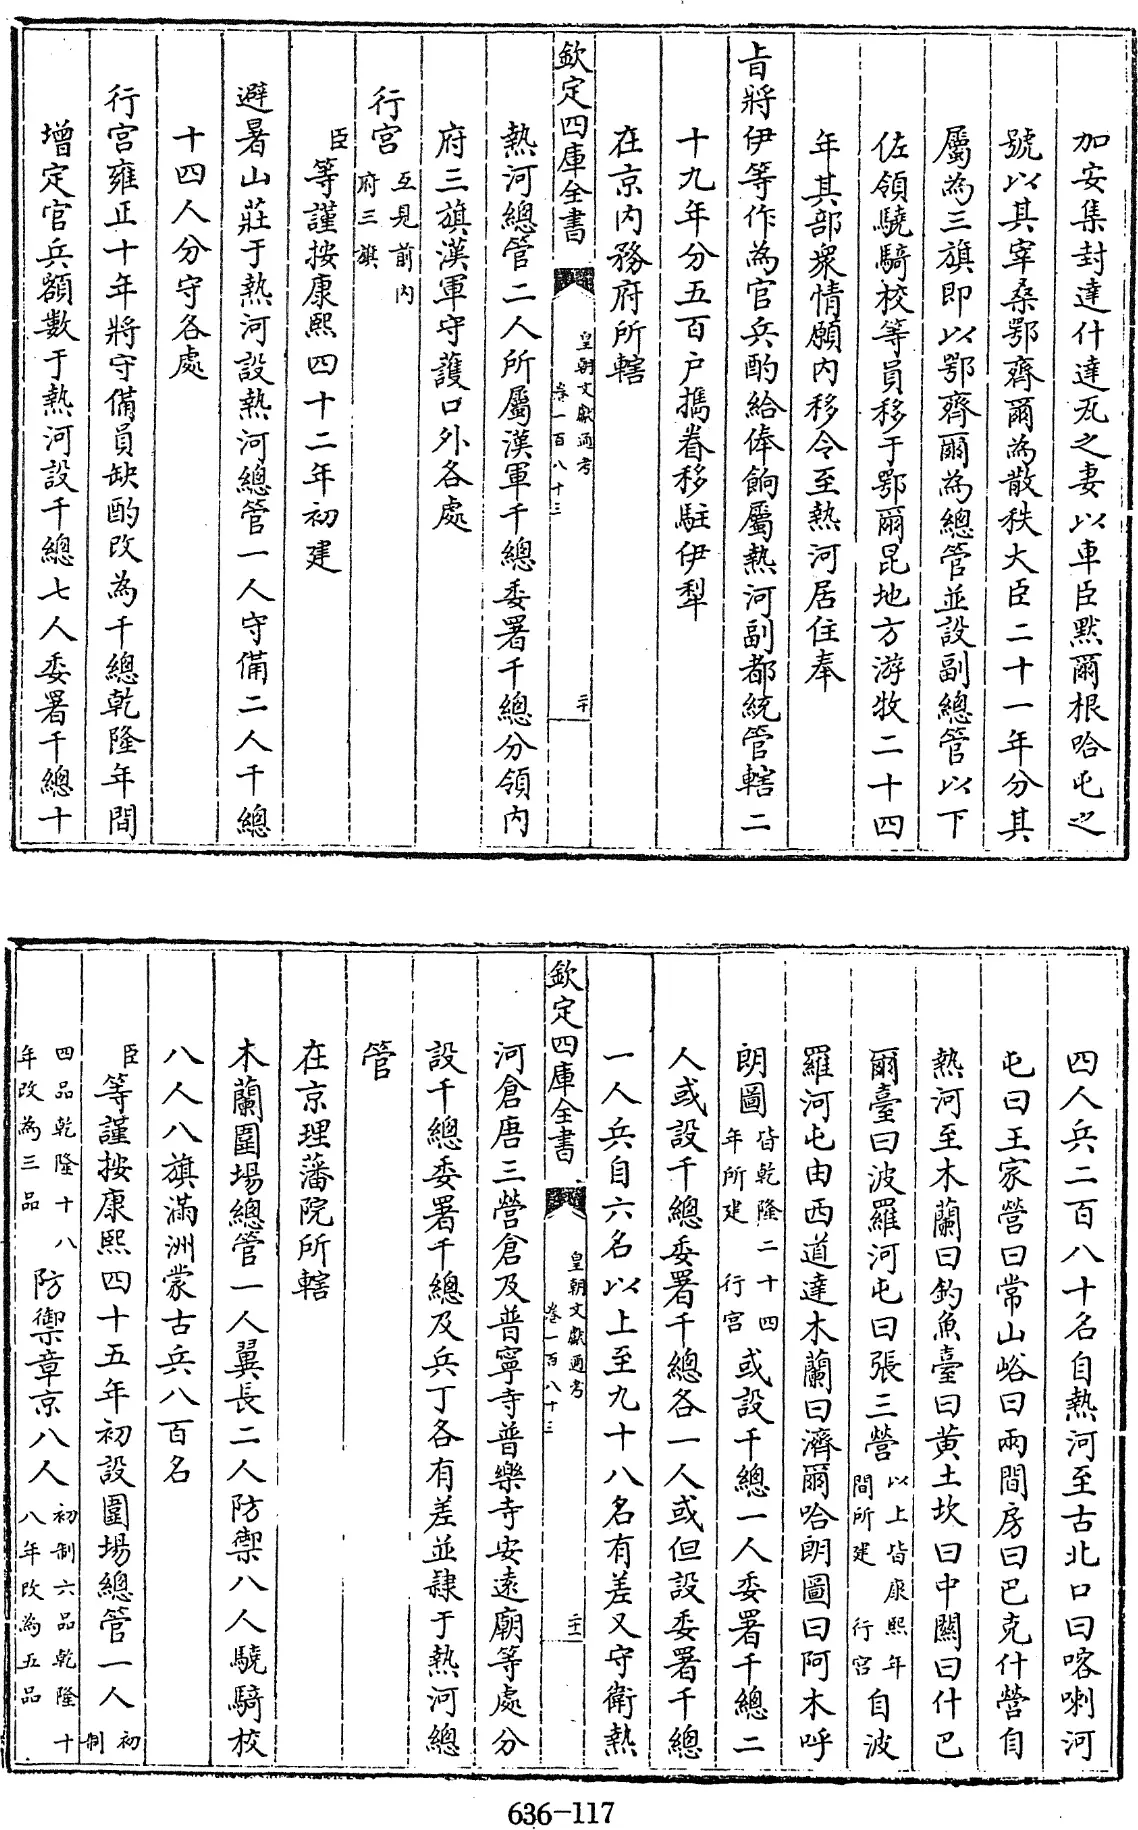 加安集封達什達瓦之妻以車臣黙爾根哈屯之
號以其宰桑鄂齊爾為散秩大臣二十一年分其
屬為三旗即以鄂齊爾為總管並設副總管以下
佐領驍騎校等員移于鄂爾昆地方游牧二十四
年其部衆情願內移令至熱河居住奉
旨將伊等作為官兵酌給俸餉屬熱河副都統管轄二
十九年分五百户攜眷移駐伊犁
在京內務府所轄
欽定四庫全書
皇朝文獻通考
卷一百八十三
二十
熱河總管二人所屬漢軍千總委署千總分領內
府三旗漢軍守護口外各處
行宮互見前內
府三旗
臣等謹按康熙四十二年初建
避暑山莊于熱河設熱河總管一人守備二人千總
十四人分守各處
行宮雍正十年將守備員缺酌改為千總乾隆年間
增定官兵額數于熱河設千總七人委署千總十
四人兵二百八十名自熱河至古北口曰喀喇河
屯曰王家營曰常山峪曰兩間房曰巴克什營自
熱河至木蘭曰釣魚臺曰黄土坎曰中關曰什巴
爾臺曰波羅河屯曰張三營以上皆康熙年
間所建行宮自波
羅河屯由西道達木蘭曰濟爾哈朗圖曰阿木呼
朗圖皆乾隆二十四
年所建行宮或設千總一人委署千總二
人或設千總委署千總各一人或但設委署千總
一人兵自六名以上至九十八名有差又守衛熱
欽定四庫全書
皇朝文獻通考
卷一百八十三
二十一
河倉唐三營倉及普寧寺普樂寺安遠廟等處分
設千總委署千總及兵丁各有差並隸于熱河總
管
在京理藩院所轄
木蘭圍場總管一人翼長二人防禦八人驍騎校
八人八旗滿洲蒙古兵八百名
臣等謹按康熙四十五年初設圍場總管一人初
制
四品乾隆十八
年改為三品防禦章京八人初制六品乾隆十
八年改為五品
636-117